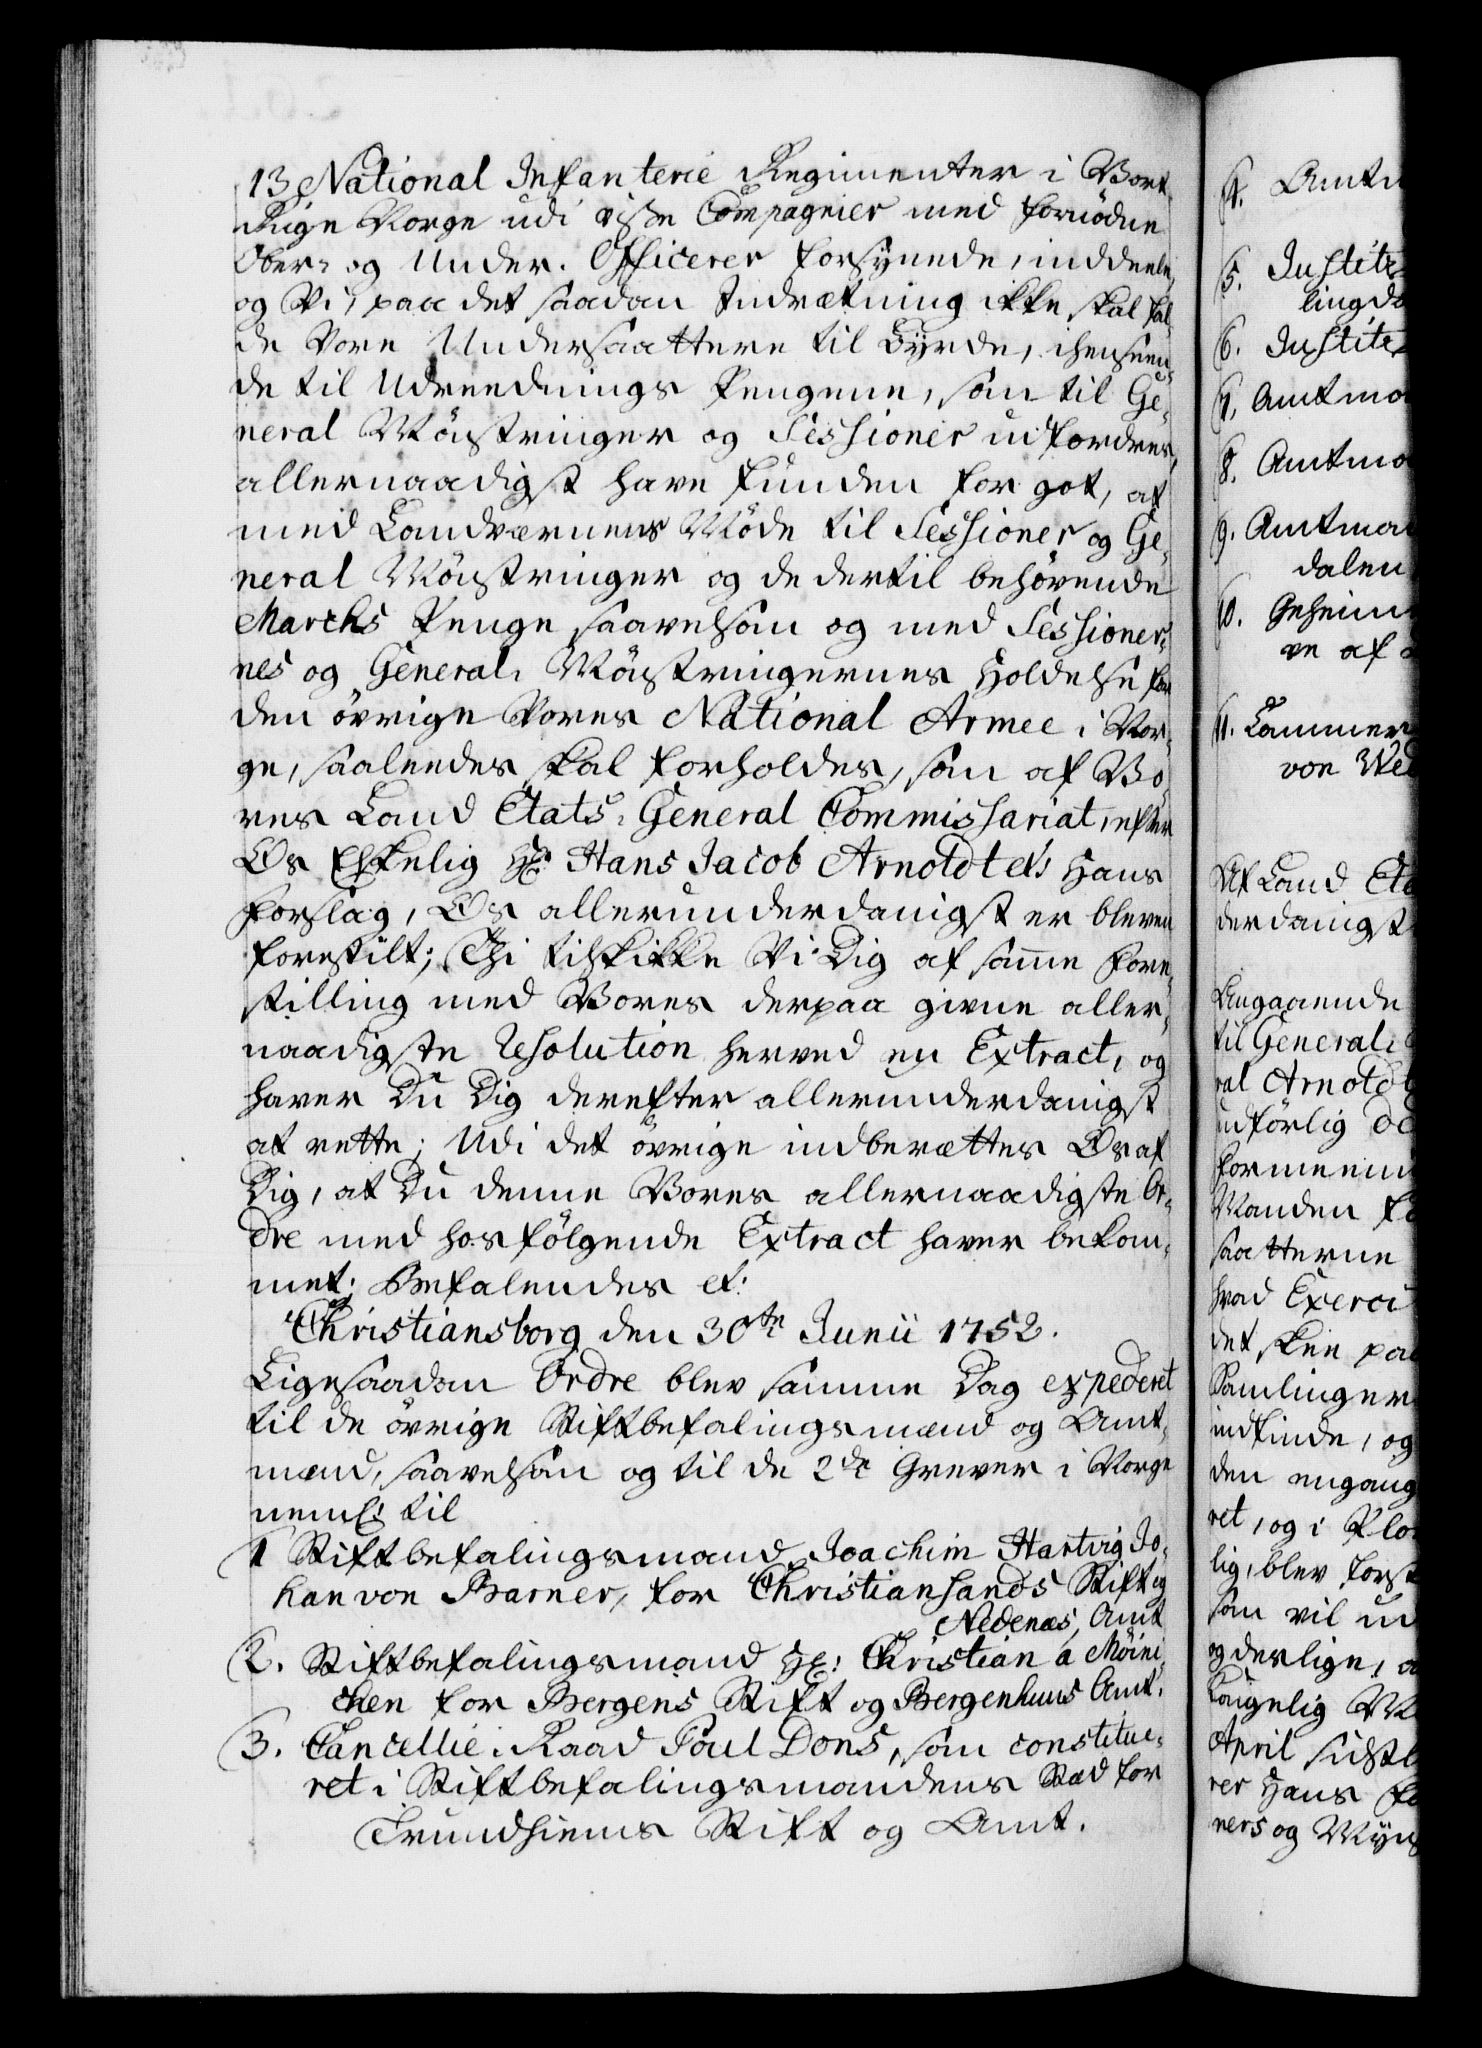 13 National Infanterie Regimenter i Vort
Rige Norge udi visse Compagnier med fornödne
Ober- og Under-Officerer forsÿnede, inddeele,
og Vi, paa det saadan Indrætning ikke skal fal-
de Vore Undersaattere til Byrde, i henseen-
de til Udreednings Pengene, som til Ge-
neral Mönstringer og Sessioner udfordres,
allernaadigst have funden for got, at
med Landværnens Möde til Sessioner og Ge-
neral Mönstringer og de dertil behövende
Marchs Penge saavelsom og med Sessioner-
nes og General-Mönstringernes Holdelse for
den övrige Vores National Armee i Nor-
ge, saaleedes skal forholdes, som af Vo-
res Land Etats-General Commissariat, efter
Os Elskelig Hr: Hans Jacob Arnoldtes Hans
Forslag, Os allerunderdanigst er bleven
forestilt; Thi tilskikke Vi Dig af samme Fore-
stilling med Vores derpaa givne aller-
naadigste Resolution herved en Extract, og
haver Du Dig derefter allerunderdanigst
at rette; Udi det övrige indberættes Os af
Dig, at Du denne Vores allernaadigste Or-
dre med hosfölgende Extract haver bekom-
met; Befalendes et:
Christiansborg den 30te Junii 1752.
Ligesaadan Ordre blev samme Dag expederet
til de övrige Stiftbefalingsmænd og Amt-
mænd, saavelsom og til de 2de Grever i Norge
neml: til
1 Stiftbefalingsmand Joachim Hartvig Jo-
han von Barner, for Christiansands Stift og
Nedenæs Amt
2. Stiftbefalingsmand Hr: Christian a Möini-
chen for Bergens Stift og Bergenhuus Amt.
3. Cancellie-Raad Poul Dons, som constitue-
ret i Stiftbefalingsmandens Stæd for
Trundhiems Stift og Amt.
4. Amtm
5. Justitz
lingda
6. Justitz
7. Amtma
8. Amtma
9. Amtma
dalen
10. Geheim
ve af
11. Cammer
von Wed
Af Land Eta
derdanigst
Angaaende
til General-
ral Arnoldt
udförlig
formeen
Manden
saatterne
hvad Exerci
det skee paa
Samlinger
indfinde, og
den engang
ret, og i
lig, blev forst
som vil ud
og derlige,
Kongelig
April sidstl
rer Hans
ners og Myn